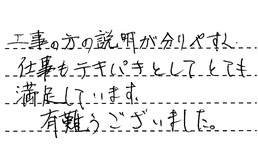 工事の方の説明が分りやすく
仕事もテキパキとしてとても
満足しています。
有難うございました。